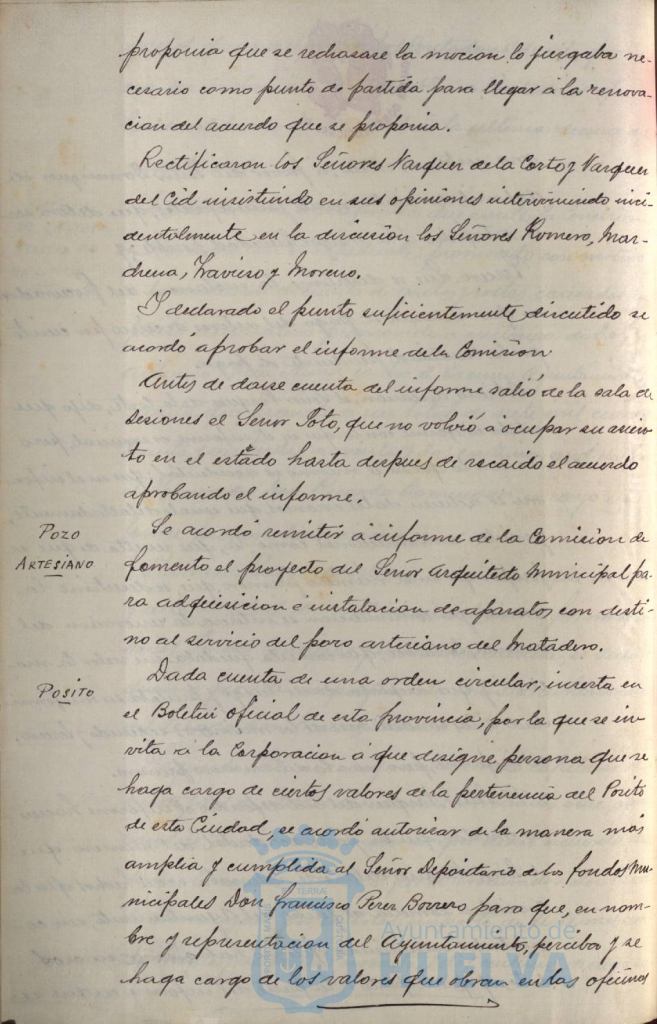 proponia que se rechazase la mocion lo juzgaba ne-
cesario como punto de partida para llegar á la renova-
cion del acuerdo que se proponia.
Rectificaron los Señores Vazquez de la Corte y Vazquez
del Cid insistiendo en sus opiniones interviniendo inci-
dentalmente en la discusion los Señores Romero, Mar-
chena, Travieso y Moreno.
Y declarado el punto suficientemente discutido se
acordó aprobar el informe de la Comision
Antes de darse cuenta del informe salió de la sala de
sesiones el Señor Toto, que no volvió á ocupar su asien-
to en el estrado hasta despues de recaido el acuerdo
aprobando el informe.
POZO
ARTESIANO
Se acordó remitir á informe de la Comision de
fomento el proyecto del Señor Arquitecto Municipal pa-
ra adquisicion é instalacion de aparatos con desti-
no al servicio del pozo artesiano del Matadero.
POSITO
Dada cuenta de una orden circular, inserta en
el Boletin oficial de esta provincia, por la que se in-
vita á la Corporacion á que designe persona que se
haga cargo de ciertos valores de la pertenencia del Posito
de esta Ciudad, se acordó autorizar de la manera mas
amplia y cumplida al Señor Depositario de los fondos Mu-
nicipales Don Francisco Perez Borrero para que, en nom-
bre y representacion del Ayuntamiento, perciba y se
haga cargo de los valores que obran en las oficinas
Ayuntamiento de
HUELVA